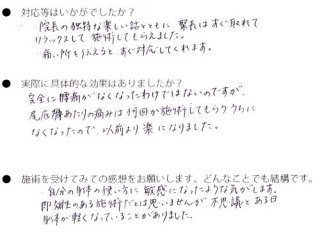 ● 対応等はいかがでしたか?
・院長の独特な楽しい話とともに、緊張はすぐ取れて
リラックスして施術してもらえました。
・痛い所をうったえると すぐ対応してくれます。
● 実際に具体的な効果はありましたか?
完全に腰痛がなくなったわけではないのですが、
尾底骨あたりの痛みは何回か施術してもらううちに
なくなったので、以前より楽になりました。
● 施術を受けてみての感想をお願いします。どんなことでも結構です。
・自分の身体の使い方に敏感になったような気がします。
即効性のある施術だとは思いませんが 不思議とある日
身体が軽くなっていることがありました。